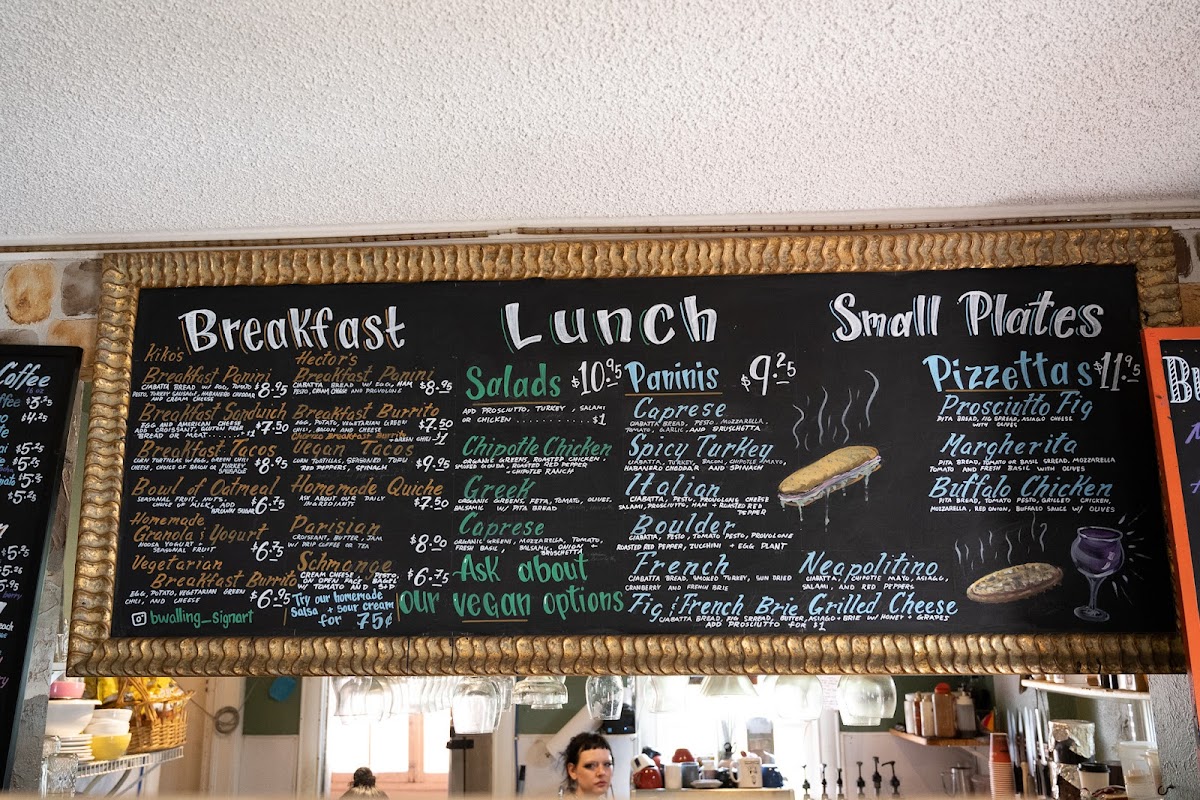 Coffee
ffee $3.25
$4.25
$5.25
$5.25
$5.25
$5.25
Breakfast
Kiko's
Breakfast Panini
CIABATTA BREAD W/ EGG, TOMATO
PESTO, TURKEY SAUSAGE, HABANERO CHEDDAR
AND CREAM CHEESE
$8.95
Breakfast Sandwich
EGG AND AMERICAN CHEESE
ADD CROISSANT, GLUTEN FREE
BREAD OR MEAT $1
$7.50
Breakfast Tacos
CORN TORTILLAS W/ EGG, GREEN CHILI
CHEESE, CHOICE OF BACON OR TURKEY
SAUSAGE
$8.95
Bowl of Oatmeal
SEASONAL FRUIT, NUTS,
CHOICE OF MILK, ADD
BROWN SUGAR
$6.75
Homemade
Granola & Yogurt
SEASONAL FRUIT
$6.75
Vegetarian
Breakfast Burrito
EGG, POTATO, VEGETARIAN GREEN
CHILI, AND CHEESE
$6.95
bwalling_signart
Hector's
Breakfast Panini
CIABATTA BREAD W/ EGG, HAM
PESTO, CREAM CHEESE AND PROVOLONE
$8.95
Breakfast Burrito
EGG, POTATO, VEGETARIAN GREEN
CHILI, BACON AND CHEESE
$7.50
Chorizo Breakfast Burrito
+GREEN CHILI $1
Vegan Tacos
CORN TORTILLAS, SEASONED TOFU
RED PEPPERS, SPINACH
$9.95
Homemade Quiche
ASK ABOUT OUR DAILY
INGREDIENTS
$7.50
Parisian
CROISSANT, BUTTER, JAM
W/ DRIP COFFEE OR TEA
$8.00
Schmange
CREAM CHEESE + PESTO
ON OPEN FACE BAGEL
W/ TOMATO AND S+P
$6.75
Try our homemade
Salsa + sour cream
for 75¢
Lunch
Salads $10.95
ADD PROSCIUTTO, TURKEY, SALAMI
OR CHICKEN $1
Chipotle Chicken
ORGANIC GREENS, ROASTED CHICKEN,
SMOKED GOUDA, ROASTED RED PEPPER
+ CHIPOTLE RANCH
Greek
ORGANIC GREENS, FETA, TOMATO, OLIVES,
BALSAMIC W/ PITA BREAD
Caprese
ORGANIC GREENS, MOZZARELLA, TOMATO,
FRESH BASIL, BALSAMIC, ONION
BRUSCHETTA
Ask about
our vegan options
Paninis $9.25
Caprese
CIABATTA BREAD, PESTO, MOZZARELLA,
TOMATO, GARLIC, AND BRUSCHETTA
Spicy Turkey
CIABATTA, TURKEY, BACON, CHIPOTLE MAYO,
HABANERO CHEDDAR AND SPINACH
Italian
CIABATTA, PESTO, PROVOLONE CHEESE
SALAMI, PROSCIUTTO, HAM + ROASTED RED
PEPPER
Boulder
CIABATTA, PESTO, TOMATO PESTO, PROVOLONE
ROASTED RED PEPPER, ZUCCHINI + EGG PLANT
French
CIABATTA BREAD, SMOKED TURKEY, SUN DRIED
CRANBERRY AND FRENCH BRIE
Neapolitino
CIABATTA, CHIPOTLE MAYO, ASIAGO,
SALAMI, AND RED PEPPERS
Fig & French Brie Grilled Cheese
CIABATTA BREAD, FIG SPREAD, BUTTER, ASIAGO + BRIE W/ HONEY + GRAPES
ADD PROSCIUTTO FOR $1
Small Plates
Pizzettas $11.95
Prosciutto Fig
PITA BREAD, FIG SPREAD, ASIAGO CHEESE
WITH OLIVES
Margherita
PITA BREAD, TOMATO OR BASIL SPREAD, MOZZARELLA
TOMATO AND FRESH BASIL WITH OLIVES
Buffalo Chicken
PITA BREAD, TOMATO PESTO, GRILLED CHICKEN,
MOZZARELLA, RED ONION, BUFFALO SAUCE W/ OLIVES